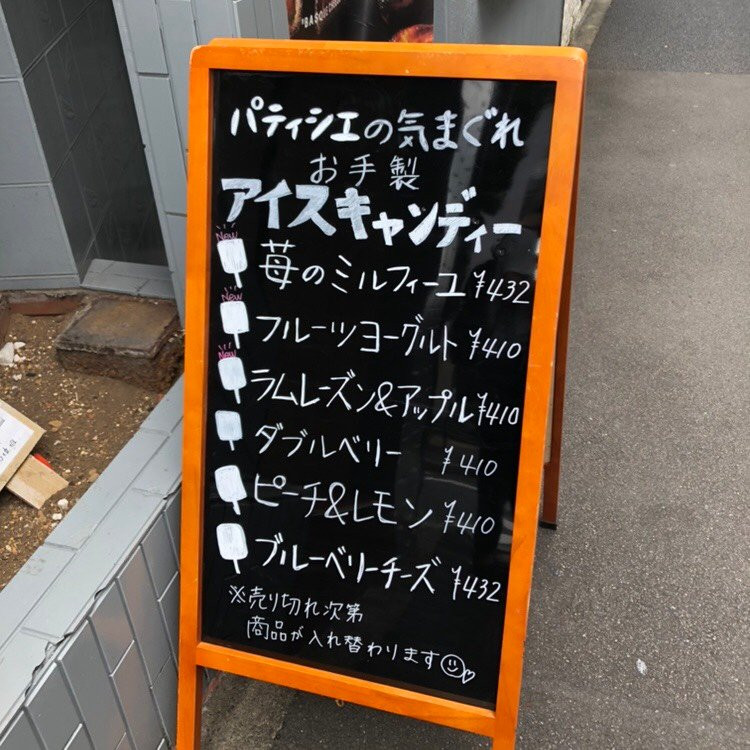 パティシエの気まぐれ
お手製
アイスキャンディー
New
苺のミルフィーユ ¥432
New
フルーツヨーグルト ¥410
New
ラムレーズン&アップル ¥410
ダブルベリー ¥410
ピーチ&レモン ¥410
ブルーベリーチーズ ¥432
※売り切れ次第
商品が入れ替わります